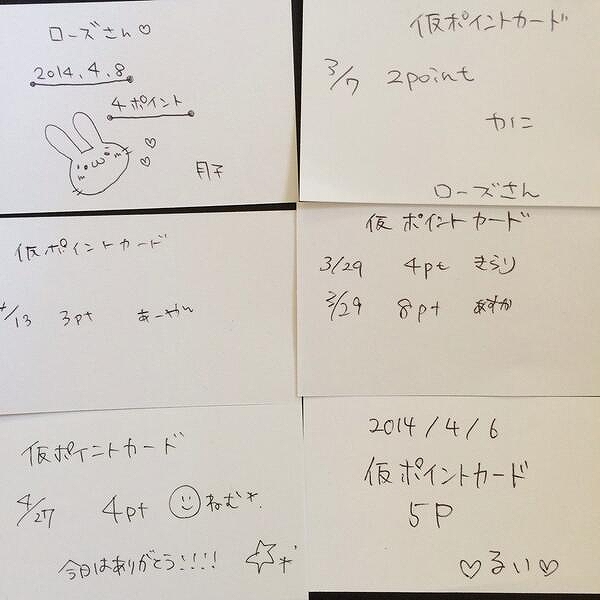 ローズさん♡
2014.4.8
4ポイント
月子
仮ポイントカード
3/7 2point
かに
ローズさん
仮ポイントカード
4/13 3pt あーやん
仮ポイントカード
3/29 4pt きらり
3/29 8pt あすか
仮ポイントカード
4/27 4pt ねむ
今日はありがとう!!!!
2014/4/6
仮ポイントカード
5P
♡るい♡